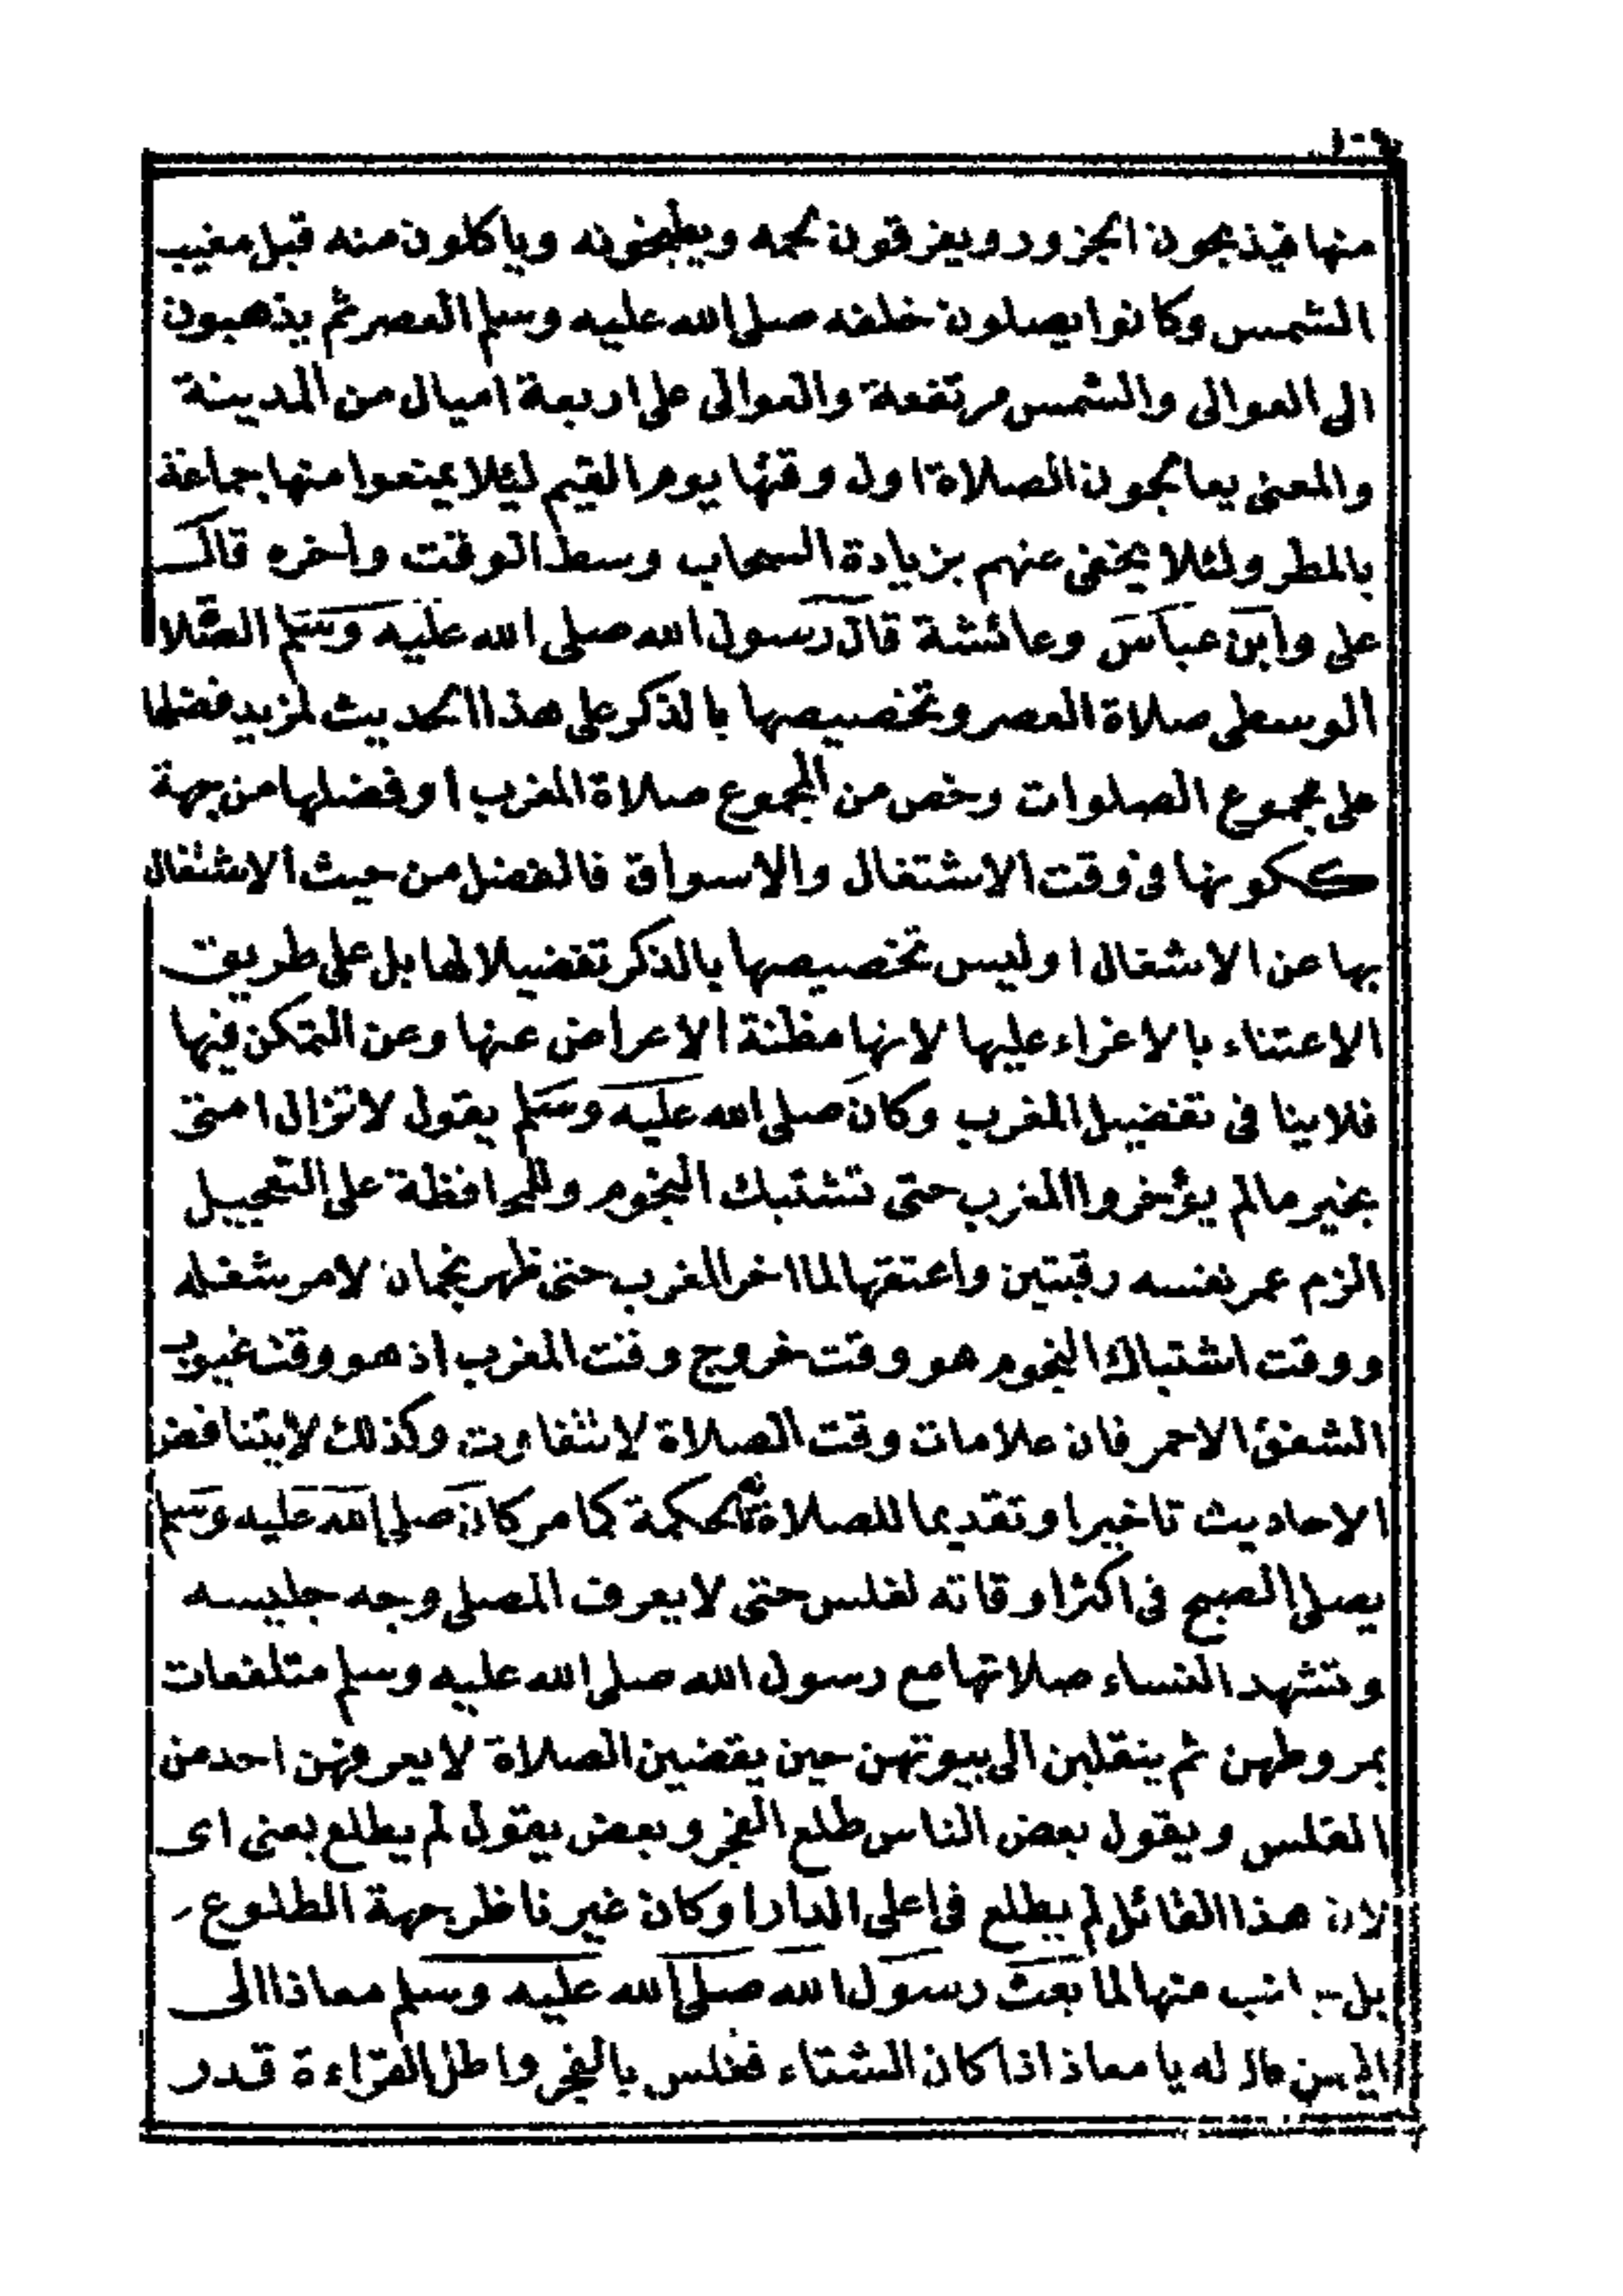 ١٠٩
منها فيذبحون الجزور ويفرقون لحمه ويطبخونه وياكلون منه قبل مغيب
الشمس وكانوا يصلون خلفه صلى الله عليه وسلم العصر ثم يذهبون
الى العوالى والشمس مرتفعة والعوالى على اربعة اميال من المدينة
والمعنى يعالجون الصلاة اول وقتها يوم الغيم لئلا يمنعوا منها جماعة
بالمطر ولئلا يخفى عنهم بزيادة السحاب وسط الوقت واخره قال
على وابن عباس وعائشة قال رسول الله صلى الله عليه وسلم الصلا
الوسطى صلاة العصر وتخصيصها بالذكر على هذا الحديث لمزيد فضلها
على مجموع الصلوات وخص من المجموع صلاة المغرب او فضلها من جهة
ككونها فى وقت الاشتغال والاسواق فالفضل من حيث الاشتغال
بها عن الاشغال او ليس تخصيصها بالذكر تفضيلا لها بل على طريق
الاعتناء بالاغراء عليها لانها مظنة الاعراض عنها وعن التمكن فيها
فلا ينا فى تفضيل المغرب وكان صلى الله عليه وسلم يقول لا تزال امتى
بخير ما لم يؤخروا المغرب حتى تشتبك النجوم وللمحافظة على التعجيل
الزم عمر نفسه رقبتين واعتقها لما اخر المغرب حتى ظهر نجمان لامر شغله
ووقت اشتباك النجوم هو وقت خروج وقت المغرب اذ هو وقت غيوب
الشفق الاحمر فان علامات وقت الصلاة لا تتفاوت وكذلك لا يتنافض
الاحاديث تاخيرا وتقديما للصلاة لحكمة كما مر كان صلى الله عليه وسلم
يصلى الصبح فى اكثر اوقاته لغلس حتى لا يعرف المصلى وجه جليسه
وتشهد النساء صلاتها مع رسول الله صلى الله عليه وسلم متلفعات
بمروطهن ثم ينقلبن الى بيوتهن حين يقضين الصلاة لا يعرفهن احد من
الغلس ويقول بعض الناس طلع الفجر وبعض يقول لم يطلع بعنى اى
لان هذا القائل لم يطلع فى اعلى الدار او كان غير ناظر جهة الطلوع
بل جانب عنها لما بعث رسول الله صلى الله عليه وسلم معاذا الى
اليمن قال له يا معاذ اذا كان الشتاء فغلس بالفجر واطل القراءة قدر